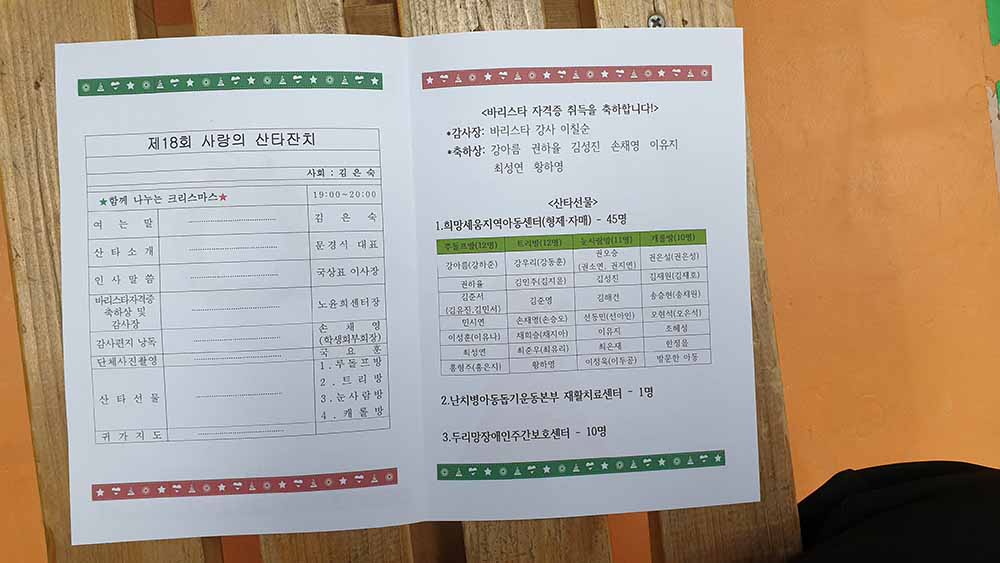 제18회 사랑의 산타잔치
사회 : 김 은 숙
★함께 나누는 크리스마스★ 19:00~20:00
여 는 말 김 은 숙
산 타 소 개 문경식 대표
인 사 말 씀 국상표 이사장
바리스타자격증
축하상 및
감사장
노윤희센터장
감사편지 낭독
손 채 영
(학생회부회장)
국 요 훈
단체사진촬영
산 타 선 물
1.루돌프방
2.트리방
3.눈사람방
4.캐롤방
귀 가 지 도
<바리스타 자격증 취득을 축하합니다!>
•감사장: 바리스타 강사 이칠순
•축하상: 강아름 권하율 김성진 손채영 이유지
최성연 황하영
<산타선물>
1.희망세움지역아동센터(형제·자매) - 45명
루돌프방(12명) 트리방(12명) 눈사람방(11명) 캐롤방(10명)
강아름(강하준) 강우리(강동훈) 권오승
(권소연, 권지연) 권은설(권은성)
권하율 김민주(김지윤) 김성진 김재원(김재호)
김준서
(김유진,김민서) 김준영 김해건 송승현(송재원)
민시연 손채영(손승오) 선동민(선아인) 오현석(오은석)
이성훈(이유나) 채희승(채지아) 이유지 조혜성
최성연 최준우(최유리) 최은재 한정률
홍형주(홍은지) 황하영 이정욱(이두공) 방문한 아동
2.난치병아동돕기운동본부 재활치료센터 - 1명
3.두리망장애인주간보호센터 - 10명